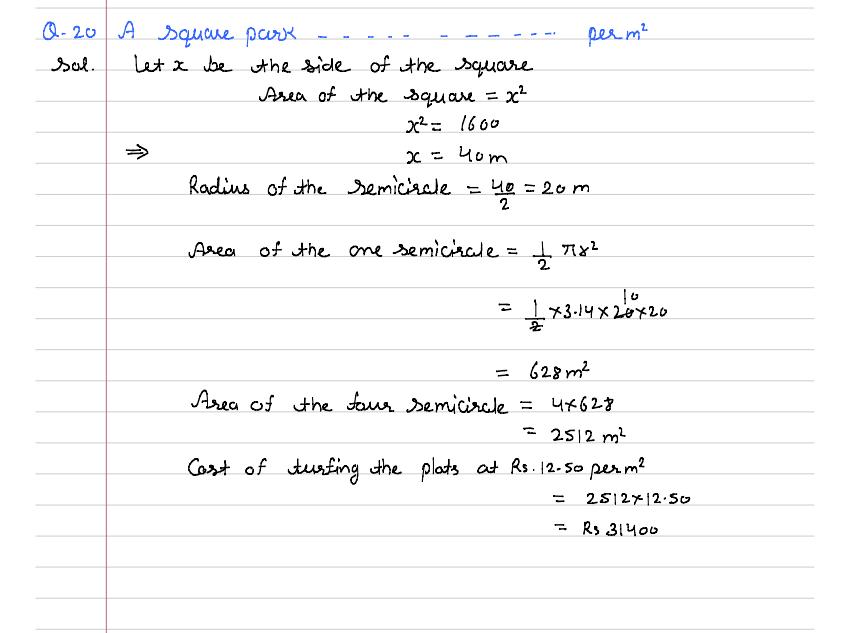 Q-20 A square park - - - - - - - - - - - ... per m²
Sol. Let x be the side of the square
Area of the square = x²
x² = 1600
⇒ x = 40m
Radius of the semicircle = 40/2 = 20 m
Area of the one semicircle = 1/2 πr²
= 1/2 × 3.14 × 20 × 20 10
= 628 m²
Area of the four semicircle = 4×628
= 2512 m²
Cost of turfing the plots at Rs. 12.50 per m²
= 2512×12.50
= Rs 31400